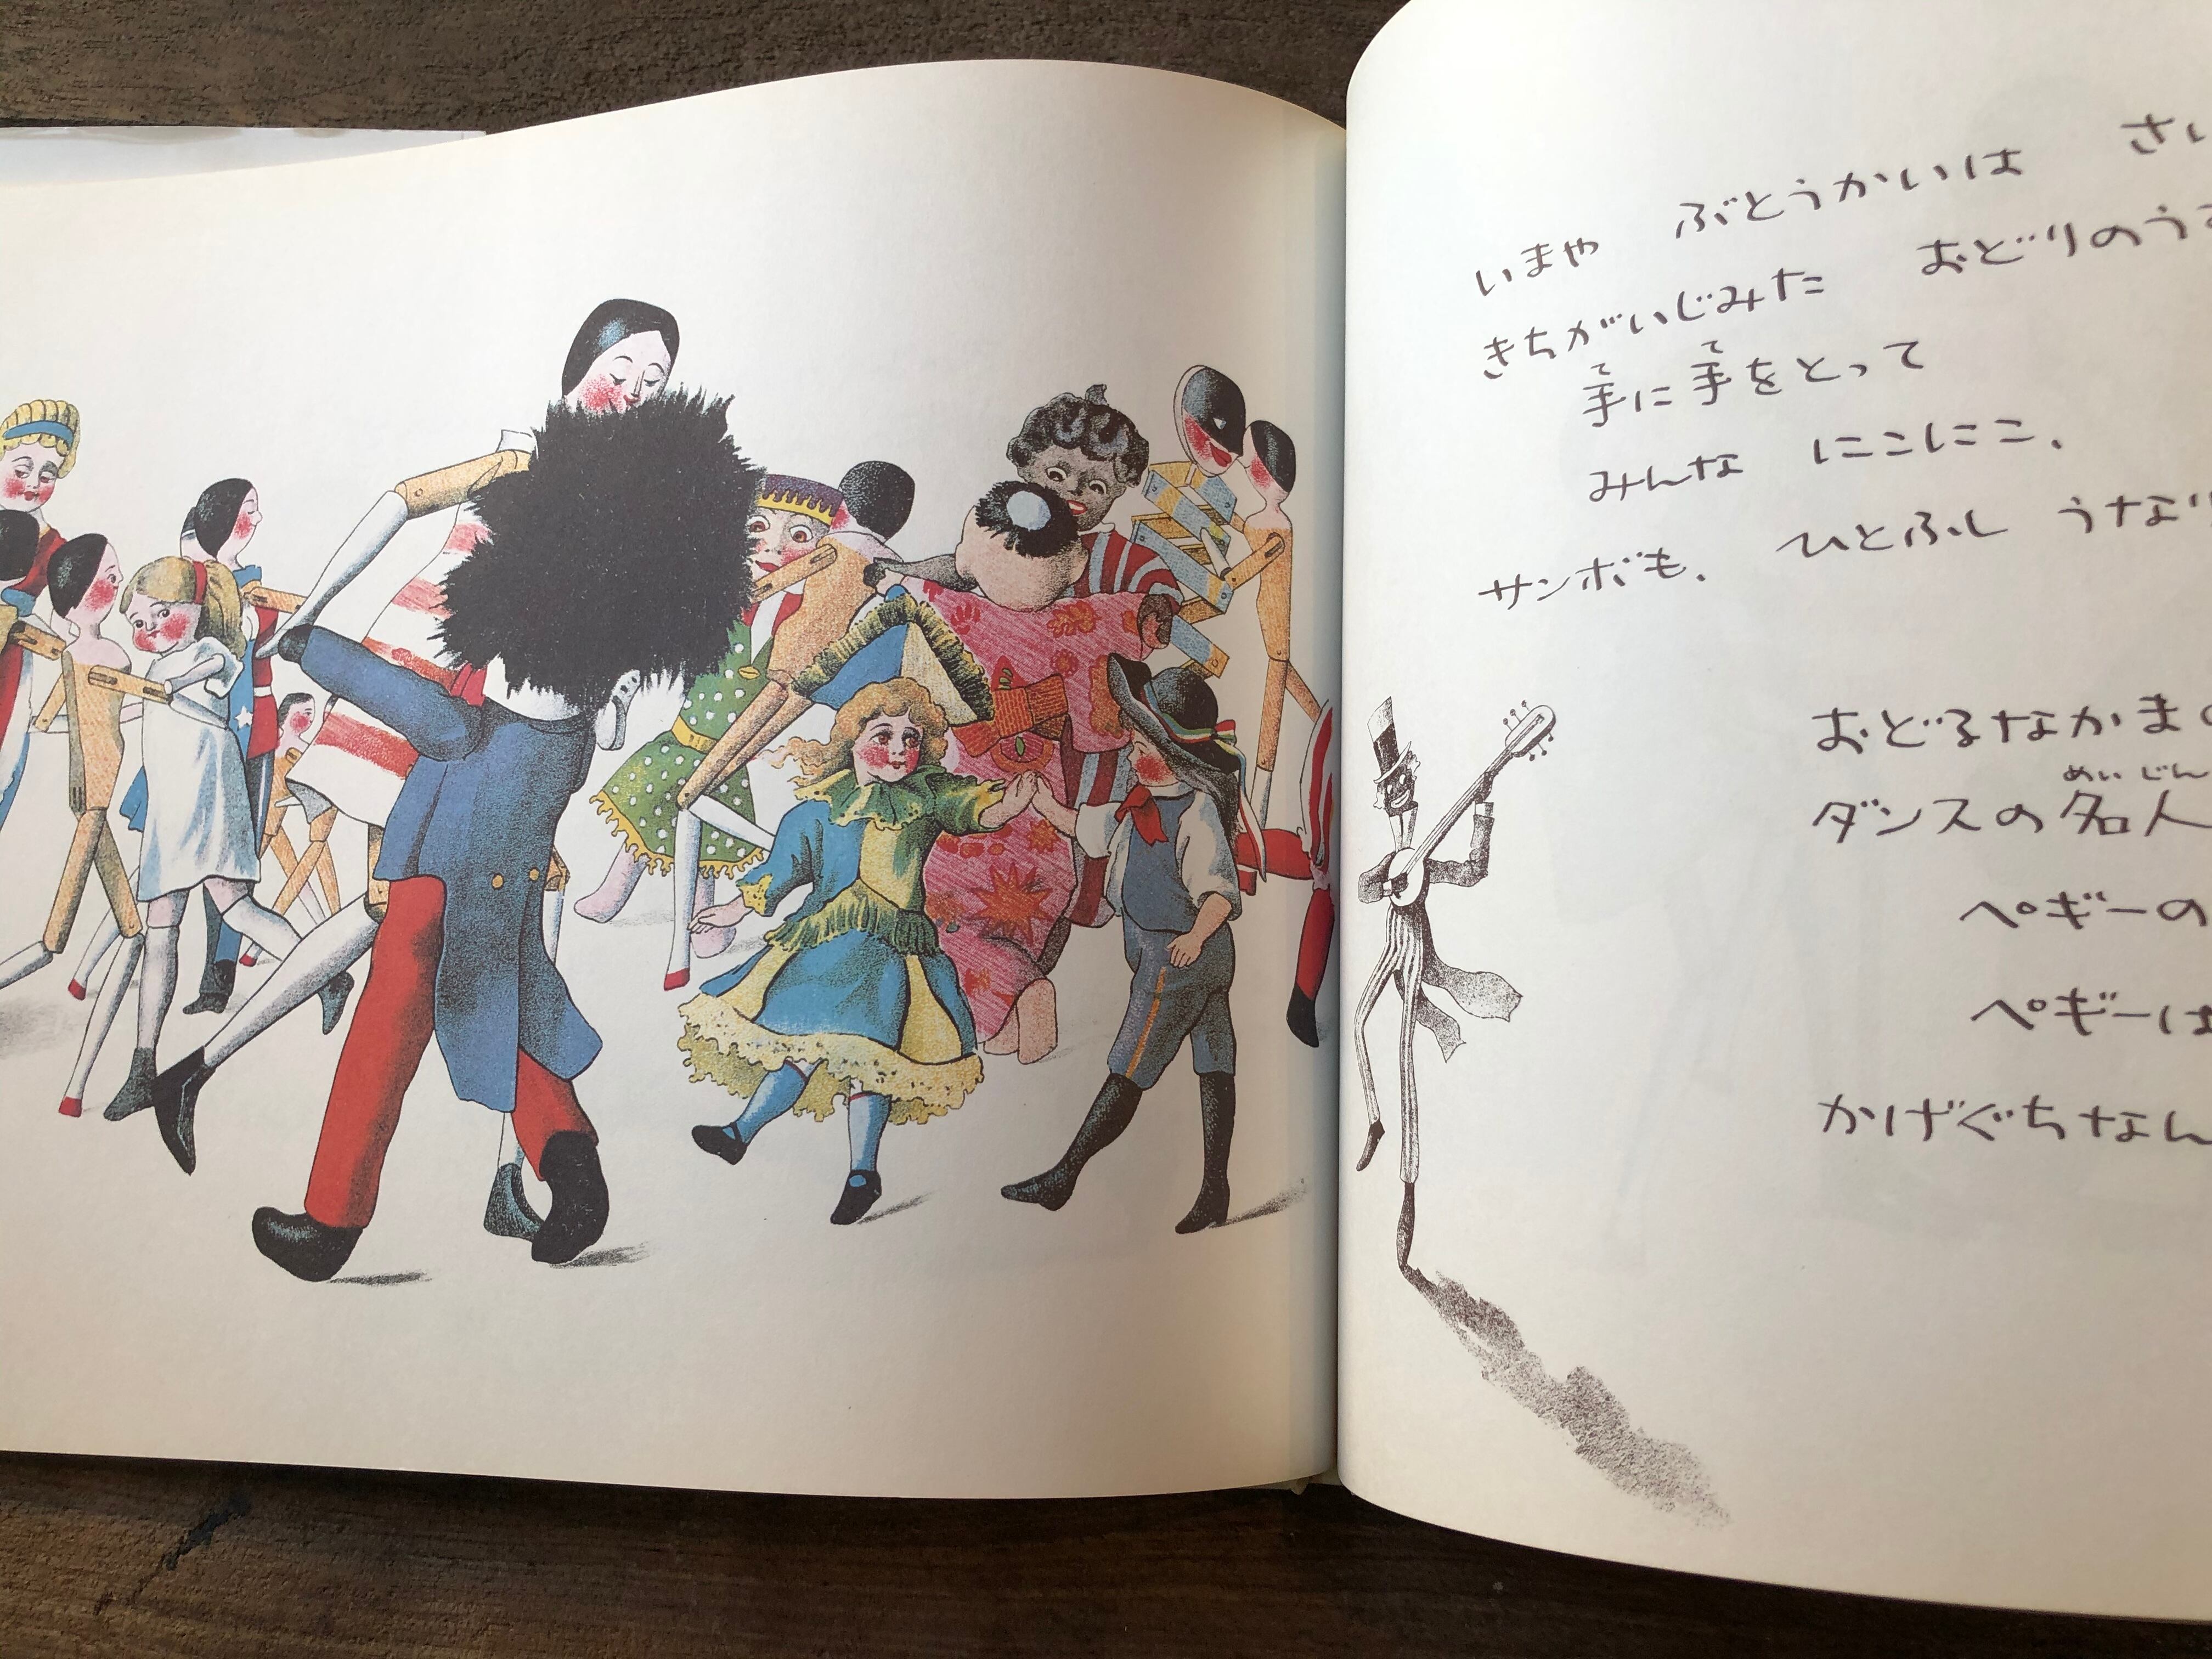 いまや ぶとうかいは さい
きちがいじみた おどりのうず
手に手をとって
みんな にこにこ、
サンボも、 ひとふし うなり
おどるなかまの
ダンスの名人
ペギーの
ペギーは
かげぐちなん